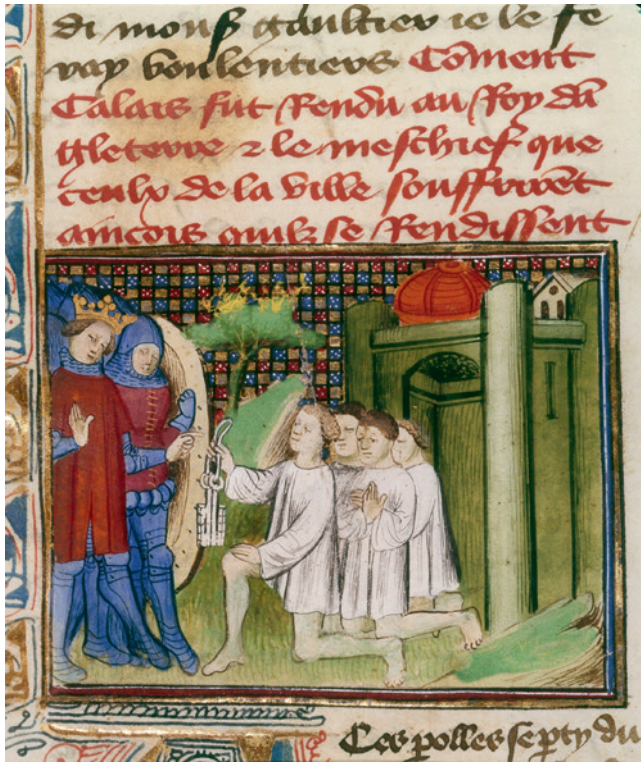 di mons̃ gaultier ie le fe
ray voulentiers Cõment
Calais fut Rendu au Roy dã
gleterre ⁊ le meschief que
ceulx de la ville souffrirẽt
aincois quilz se Rendissent
Ces polles se pty du